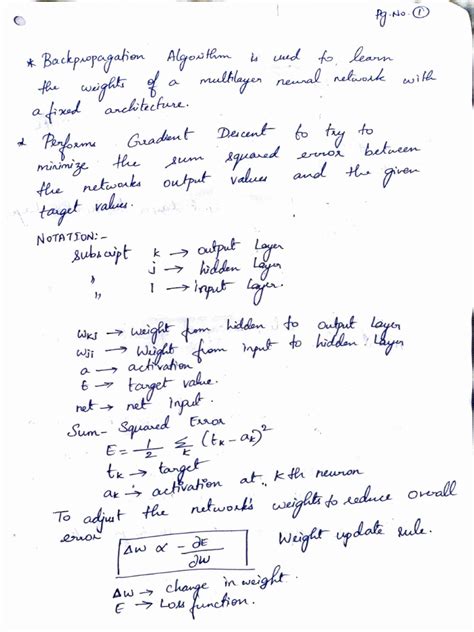 Pg. No. ①
* Backpropagation Algorithm is used to learn
the weights of a multilayer neural network with
a fixed architecture.
* Performs Gradient Descent to try to
minimize the sum squared error between
the networks output values and the given
target values.
NOTATION:-
Subscript k → output Layer
" j → hidden Layer
" i → input Layer.
Wkj → weight from hidden to output Layer
Wji → Weight from input to hidden Layer
a → activation
t → target value.
net → net Input.
Sum-Squared Error
E = 1/2 Σk (tk - ak)²
tk → target
ak → activation at kth neuron
To adjust the network's weights to reduce overall
error ΔW ∝ -∂E/∂W Weight update rule.
ΔW → change in weight.
E → Loss function.